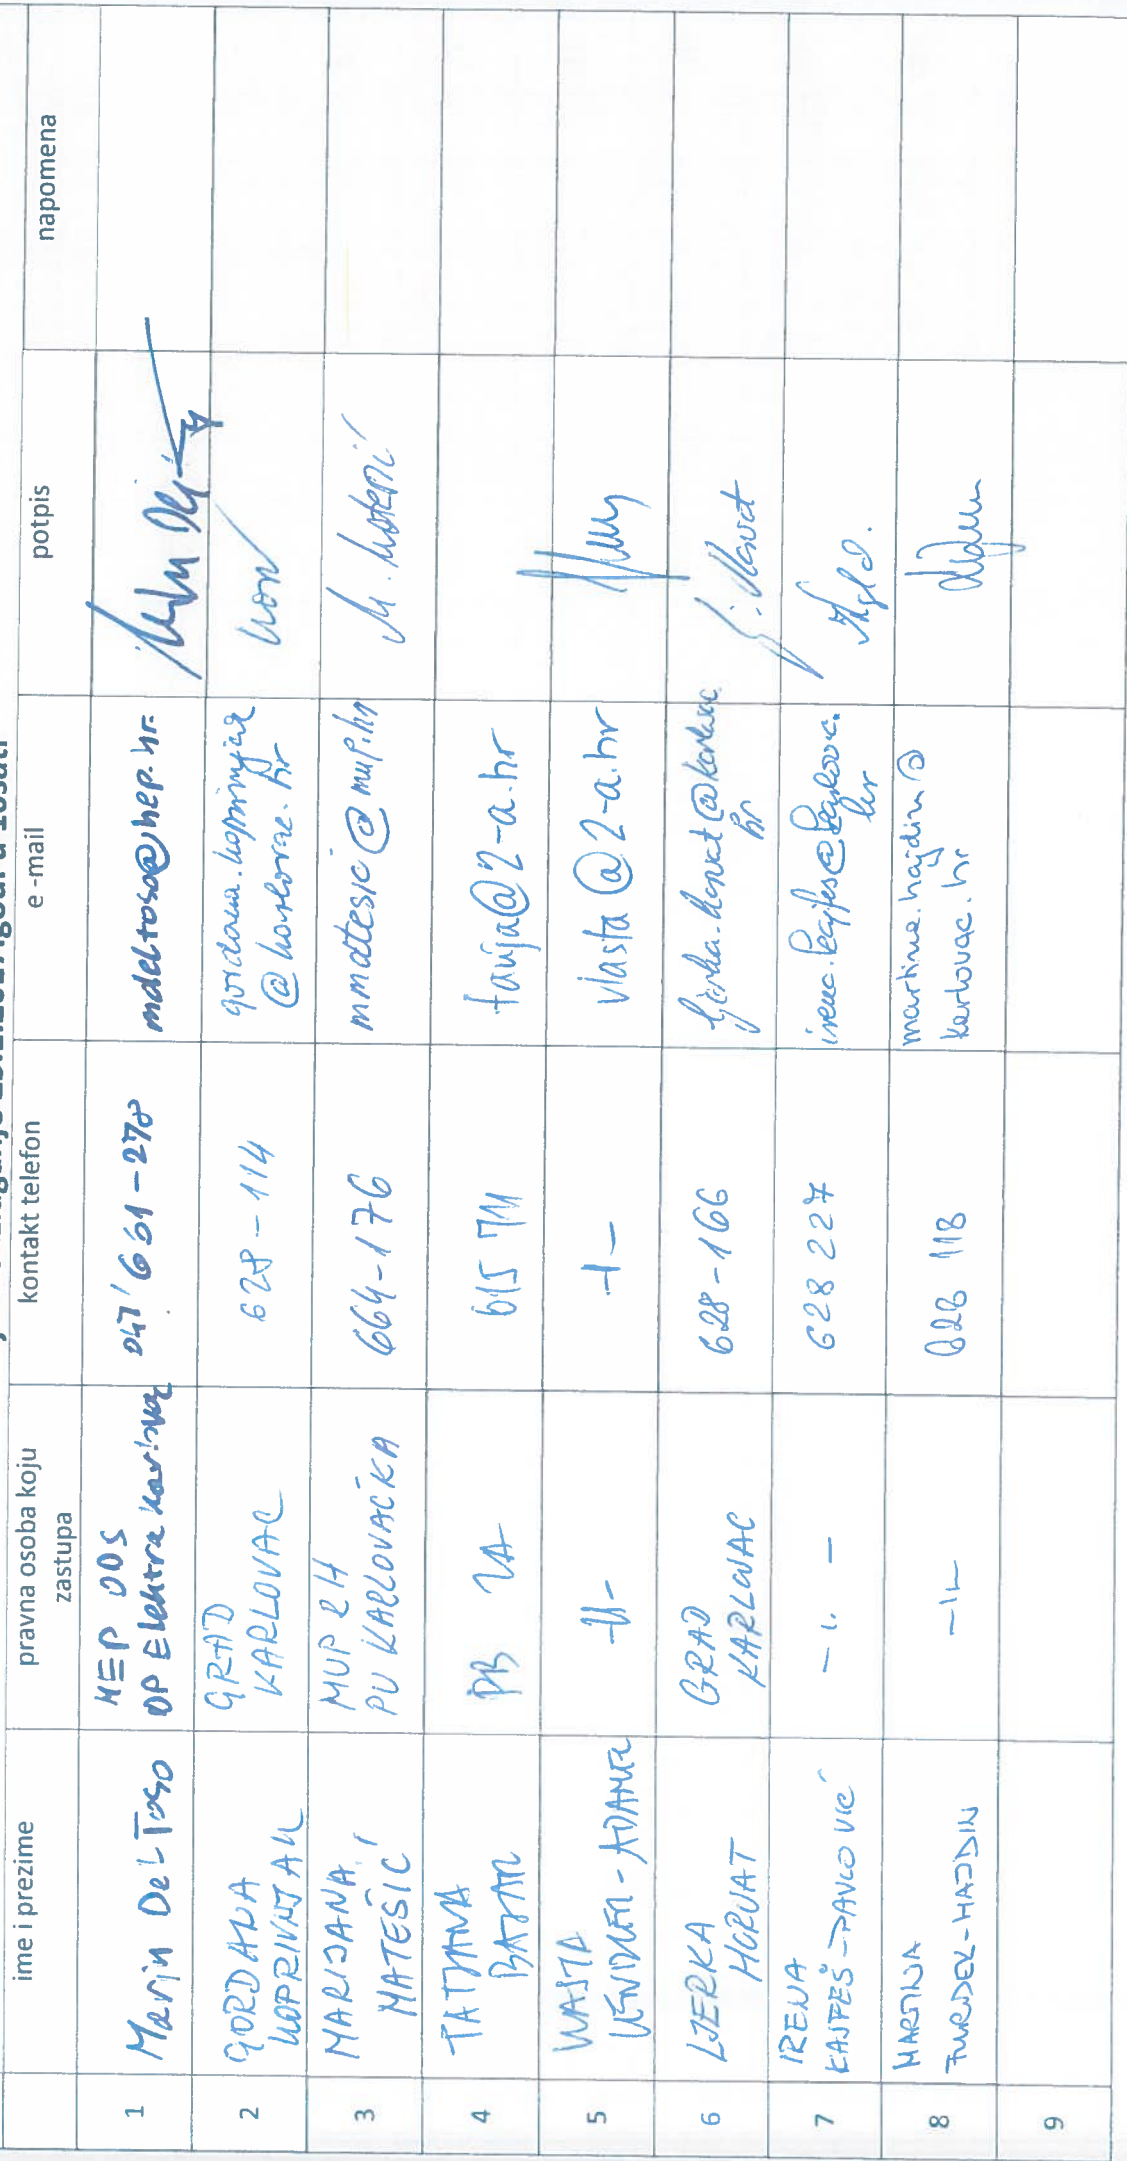 ime i prezime pravna osoba koju zastupa kontakt telefon e -mail potpis napomena
1 Marin Del Toso HEP ODS DP Elektra Karlovac 047/661-278 mdeltoso@hep.hr
2 GORDANA KOPRIVNJAK GRAD KARLOVAC 628-114 gordana.koprivnjak@karlovac.hr
3 MARIJANA MATEŠIĆ MUP RH PU KARLOVAČKA 664-176 mmatesic@mup.hr M. Matešić
4 TATJANA 615 711 tanja@2-a.hr
5 VLASTA -11- vlasta@2-a.hr
6 LJERKA HORVAT GRAD KARLOVAC 628-166 ljerka.horvat@karlovac.hr
7 IRENA KAJFEŠ-PAVLOVIĆ -"- 628 227 irena.kajfes@karlovac.hr
8 MARTINA FURDEK-HAJDIN -11- 628 118 martina.hajdin@karlovac.hr
9